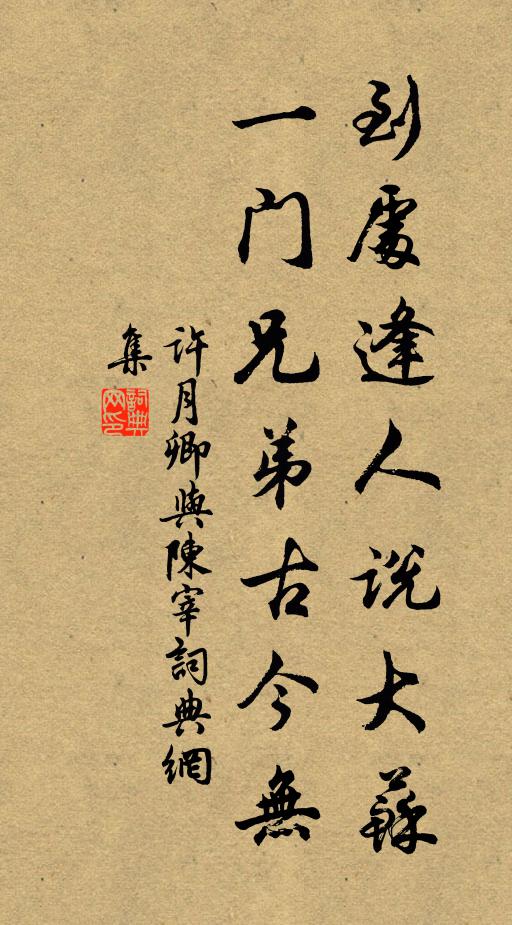 到處逢人說大蘇
一门兄弟古今無
许月卿與陳宰詞典網
集
詞典
网印